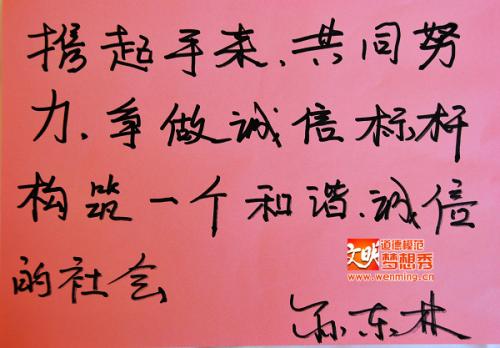 携起手来、共同努
力、争做诚信标杆
构筑一个和谐、诚信
的社会
文明 道德模范
梦想秀
www.wenming.cn
孙东林